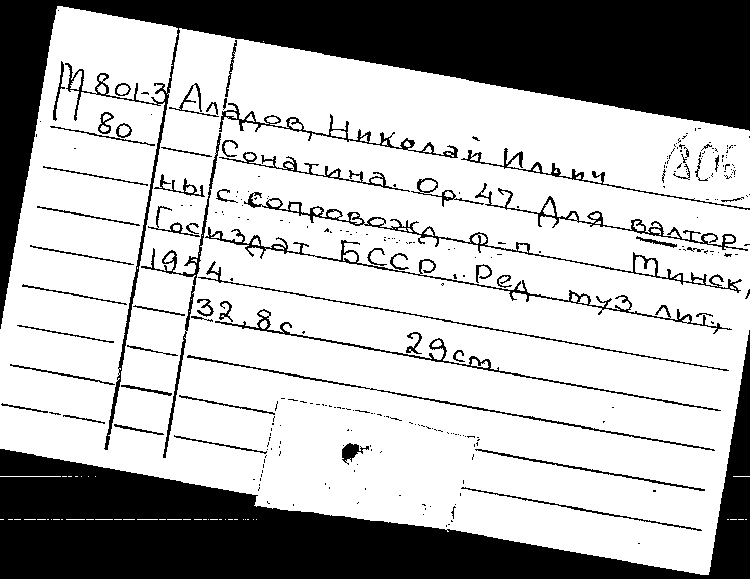 М 801-3
80
Аладов, Николай Ильич
806
Сонатина. Ор. 47. Для валтор-
ны с сопровожд ф-п. Минск,
Госиздат БССР. Ред муз. лит.,
1954.
32, 8 с. 29 cm.